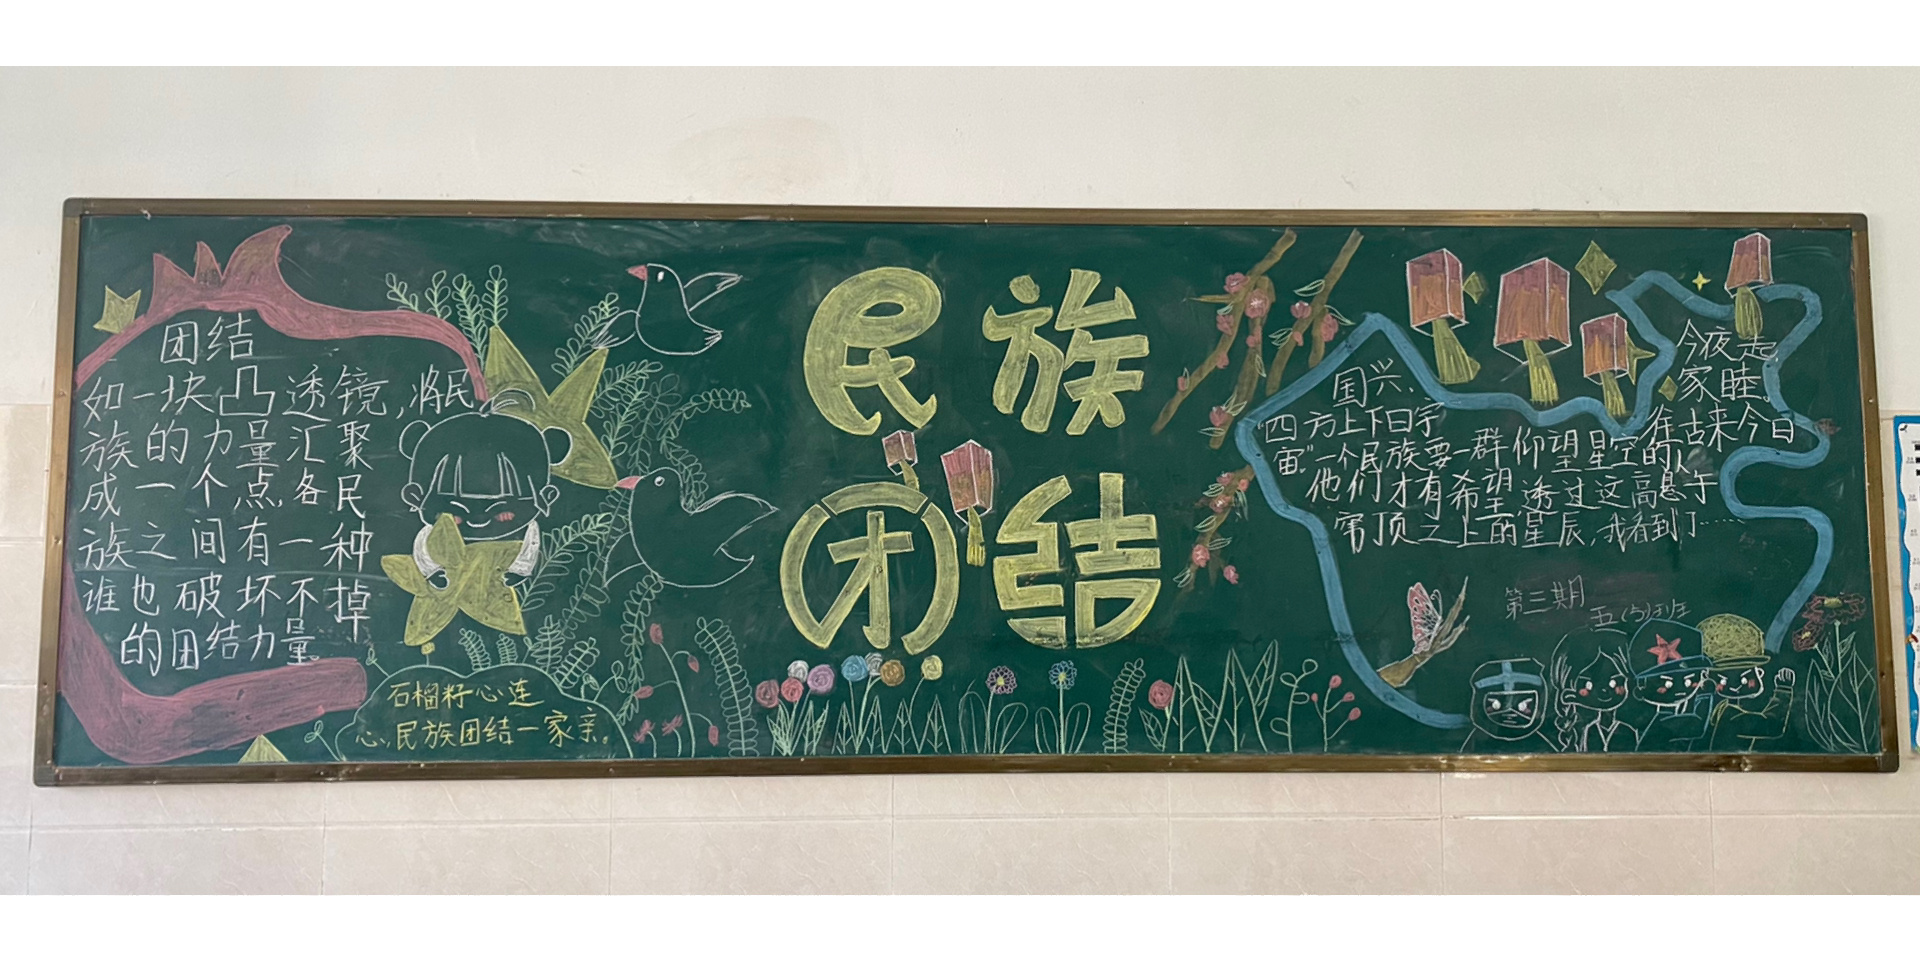 团结
如一块凸透镜,将民
族的力量汇聚
成一个点,各民
族之间有一种
谁也破坏不掉
的团结力量。
石榴籽心连
心,民族团结一家亲。
民族
团结
今夜起
国兴、家睦。
"四方上下曰宇 往古来今曰
宙"一个民族要一群仰望星空的人
他们才有希望,透过这高悬于
穹顶之上的星辰,我看到了……
第三期
五(5)班